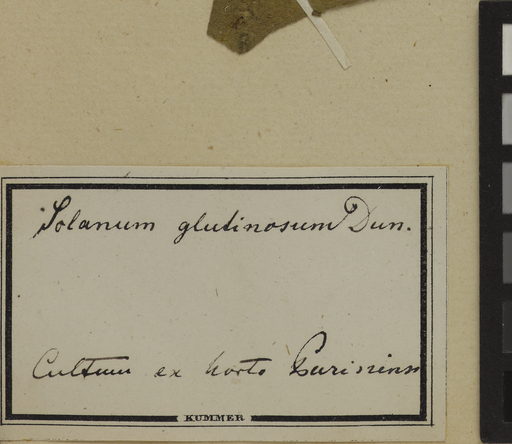 Solanum glutinosum Dun.
Cultum ex horto Parisiens
KUMMER